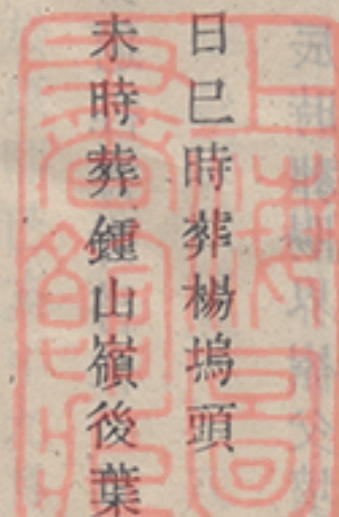 日巳時葬楊塢頭
未時葬鍾山嶺後葉